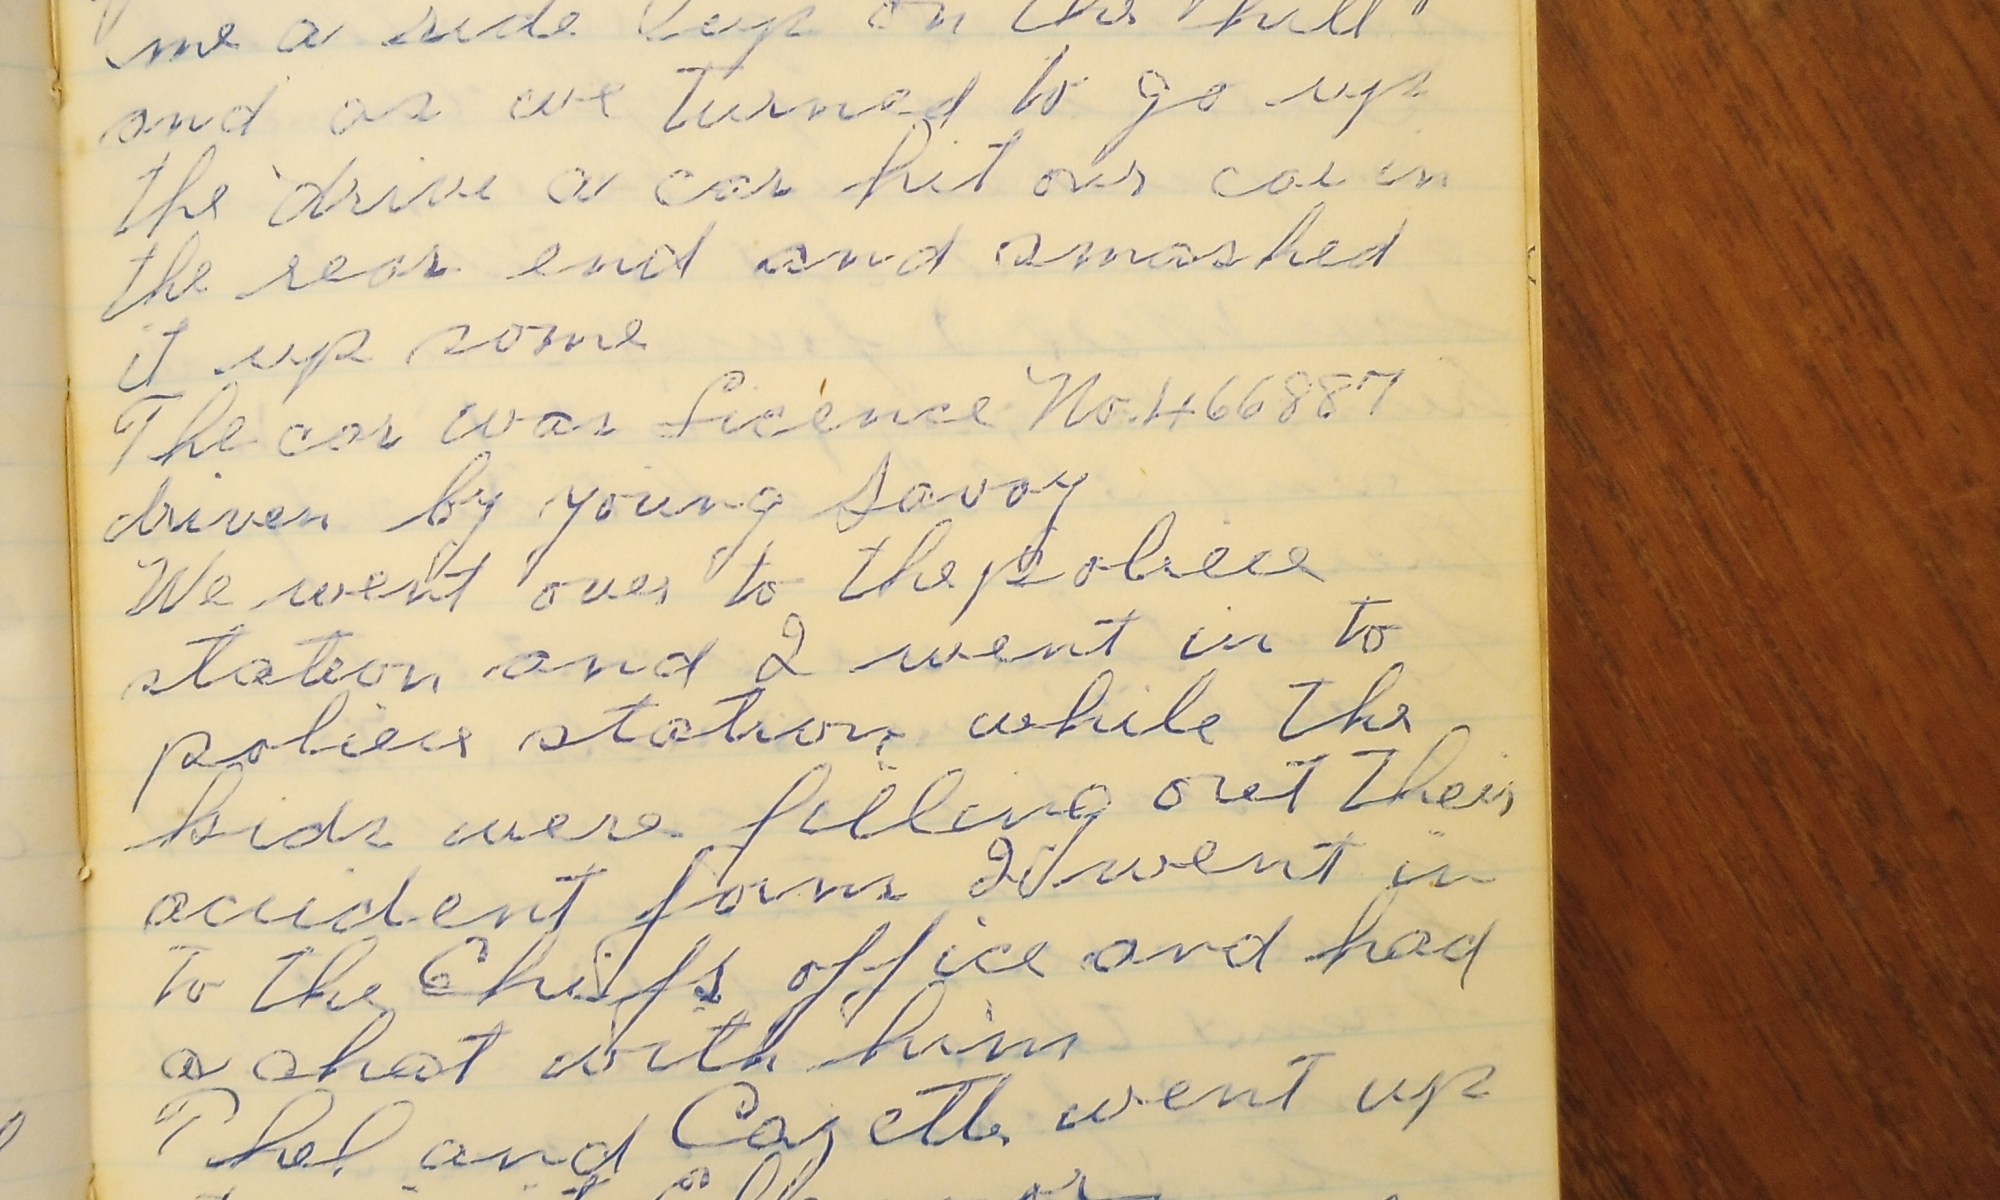 me a ride up on the "hill"
and as we turned to go up
the drive a car hit our car in
the rear end and smashed
it up some
The car was licence No. 466887
driven by young Savoy
We went over to the poliece
station and I went in to
poliece station while the
kids were filling out their
accident form I went in
to the Chiefs office and had
a chat with him
Thel and went up